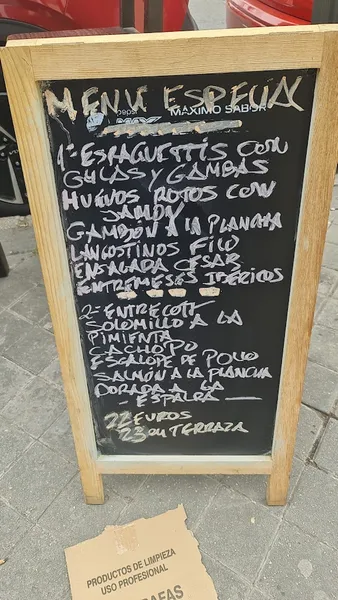 MENU ESPECIAL
pepsi
MAX MAXIMO SABOR
1º-ESPAGUETTIS CON
GULAS Y GAMBAS
HUEVOS ROTOS CON
JAMON
GAMBÓN A LA PLANCHA
LANGOSTINOS FILO
ENSALADA CESAR
ENTREMESES IBERICOS
2-ENTRECOTT
SOLOMILLO A LA
PIMIENTA
CACHOPO
ESCALOPE DE POLLO
SALMÓN A LA PLANCHA
DORADA A LA
- ESPALDA -
22 EUROS
23 EN TERRAZA
PRODUCTOS DE LIMPIEZA
USO PROFESIONAL
RAFAS